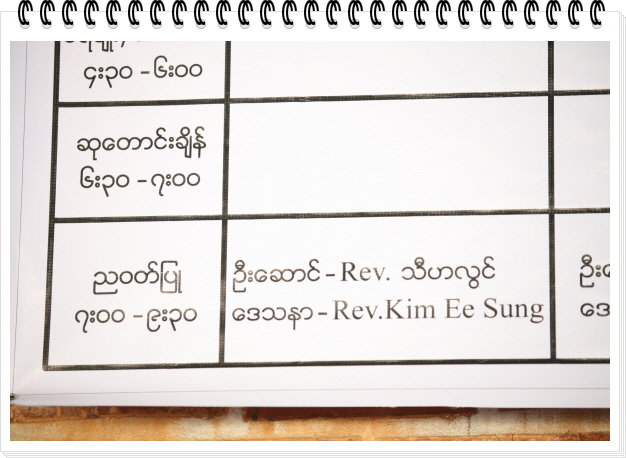 ၄း၃၀ -၆း၀၀
ဆုတောင်းချိန်
၆း၃၀ -၇း၀၀
ညဝတ်ပြု
၇း၀၀ -၉း၃၀
ဦးဆောင် - Rev. သီဟလွင်
ဒေသနာ - Rev.Kim Ee Sung